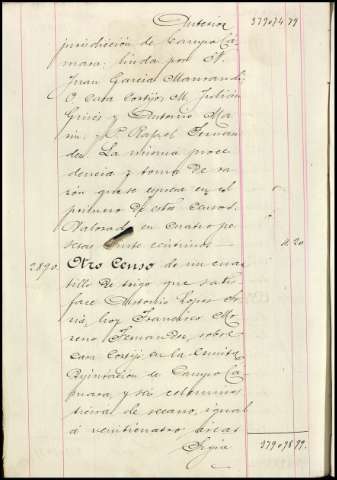 Anterior 37974 79
jurisdicción de Campo Cá-
mara: linda por N.
Juan García
O. Casa Cortijo, M. Julián
y Antonio
y P. Rafael Fernan-
dez. La misma proce-
dencia y toma de ra-
zón que se espresa en el
primero de estos censos.
Valorado en cuatro pe-
setas veinte centimos 4 20
2890. Otro Censo de un cuar-
tillo de trigo que satis-
face Antonio Lopez
hoy Francisco Mo-
reno Fernandez, sobre
Casa Cortijo en la
de Campo Cá-
mara, y seis celemines
de secano, igual
á veinticuatro áreas
Sigue 37978 99